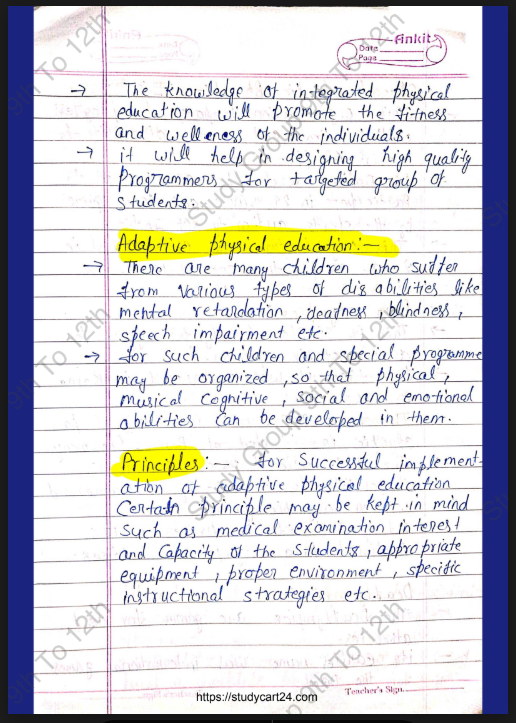 Ankit
Date
Page
→ The knowledge of integrated physical
education will promote the fitness
and welleness of the individuals.
→ it will help in designing high quality
Programmers for targeted group of
students.
Adaptive physical education:-
→ There are many children who suffer
from various types of disabilities like
mental retardation, deafness, blindness,
speech impairment etc.
→ for such children and special programme
may be organized, so that physical,
musical cognitive, social and emotional
abilities can be developed in them.
Principles:- for successful implement-
ation of adaptive physical education
Certain principle may be kept in mind
such as medical examination interest
and capacity of the students, appropriate
equipment, proper environment, specific
instructional strategies etc.
https://studycart24.com
Teacher's Sign
Study Group 9th To 12th
Study Group 9th To 12th